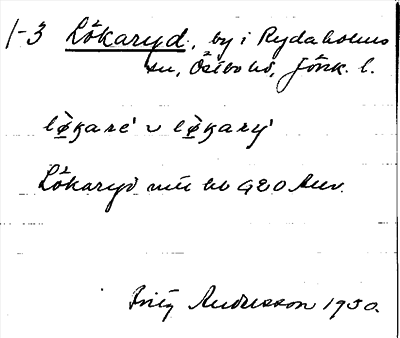 1-3 Lökaryd, by i Rydaholms
sn, Östbo hd, Jönk. l.
lø̀ꞣare' ~ lø̀ꞣary'
Lökaryd
Fritz Andersson 1930.